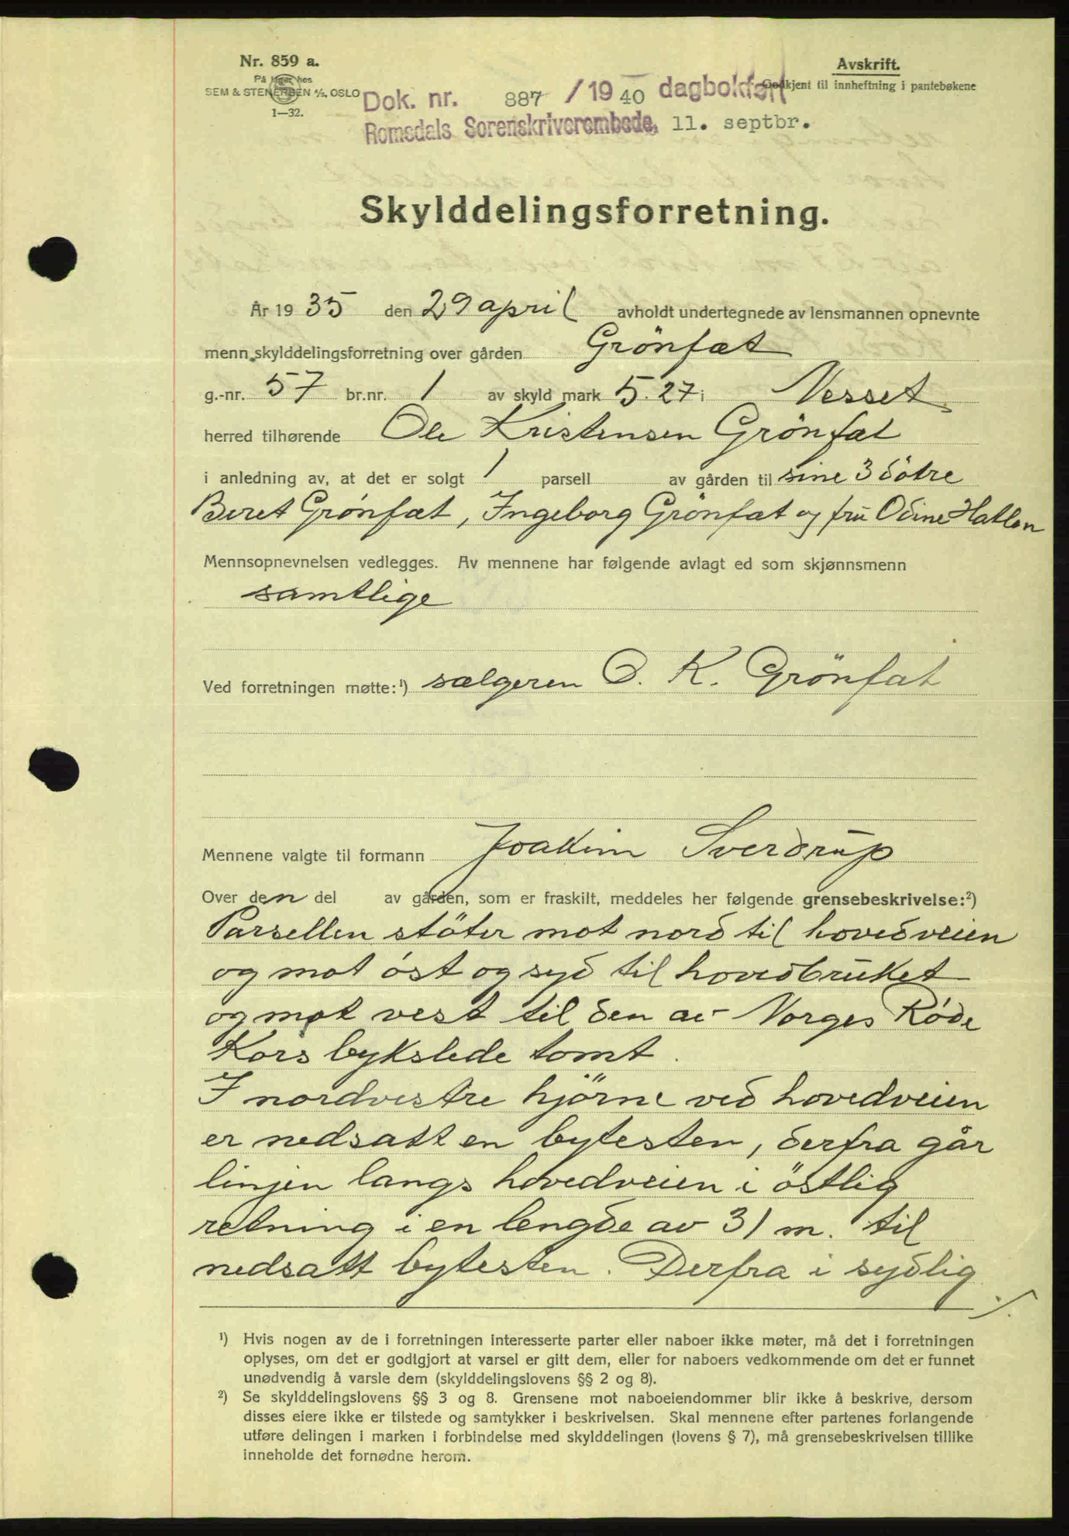 Nr. 859 a.
På lager hos
SEM & STENERSEN A/S, OSLO
1—32.
Avskrift.
Godkjent til innheftning i pantebøkene
Dok. nr. 887 / 1940 dagbokført
Romsdals Sorenskriverembede, 11. septbr.
Skylddelingsforretning.
År 1935 den 29 april avholdt undertegnede av lensmannen opnevnte
menn skylddelingsforretning over gården Grönfæt
g.-nr. 57 br.nr. 1 av skyld mark 5.27 i Nesset
herred tilhørende Ole Kristensen Grönfæt
i anledning av, at det er solgt 1 parsell av gården til sine 3 dötre
Beret Grönfæt, Ingeborg Grönfæt og fru Odine Hatlen
Mennsopnevnelsen vedlegges. Av mennene har følgende avlagt ed som skjønnsmenn
samtlige
Ved forretningen møtte:¹) sælgeren O. K. Grönfæt
Mennene valgte til formann Joakim Sverdrup
Over den del av gården, som er fraskilt, meddeles her følgende grensebeskrivelse:²)
Parsellen stöter mot nord til hovedveien
og mot öst og syd til hovedbruket
og mot vest til den av Norges Röde
Kors bykslede tomt.
I nordvestre hjörne ved hovedveien
er nedsatt en bytesten, derfra går
linjen langs hovedveien i östlig
retning i en lengde av 31 m. til
nedsatt bytesten. Derfra i sydlig
./.
¹) Hvis nogen av de i forretningen interesserte parter eller naboer ikke møter, må det i forretningen
oplyses, om det er godtgjort at varsel er gitt dem, eller for naboers vedkommende om det er funnet
unødvendig å varsle dem (skylddelingslovens §§ 2 og 8).
²) Se skylddelingslovens §§ 3 og 8. Grensene mot naboeiendommer blir ikke å beskrive, dersom
disses eiere ikke er tilstede og samtykker i beskrivelsen. Skal mennene efter partenes forlangende
utføre delingen i marken i forbindelse med skylddelingen (lovens § 7), må grensebeskrivelsen tillike
inneholde det fornødne herom.